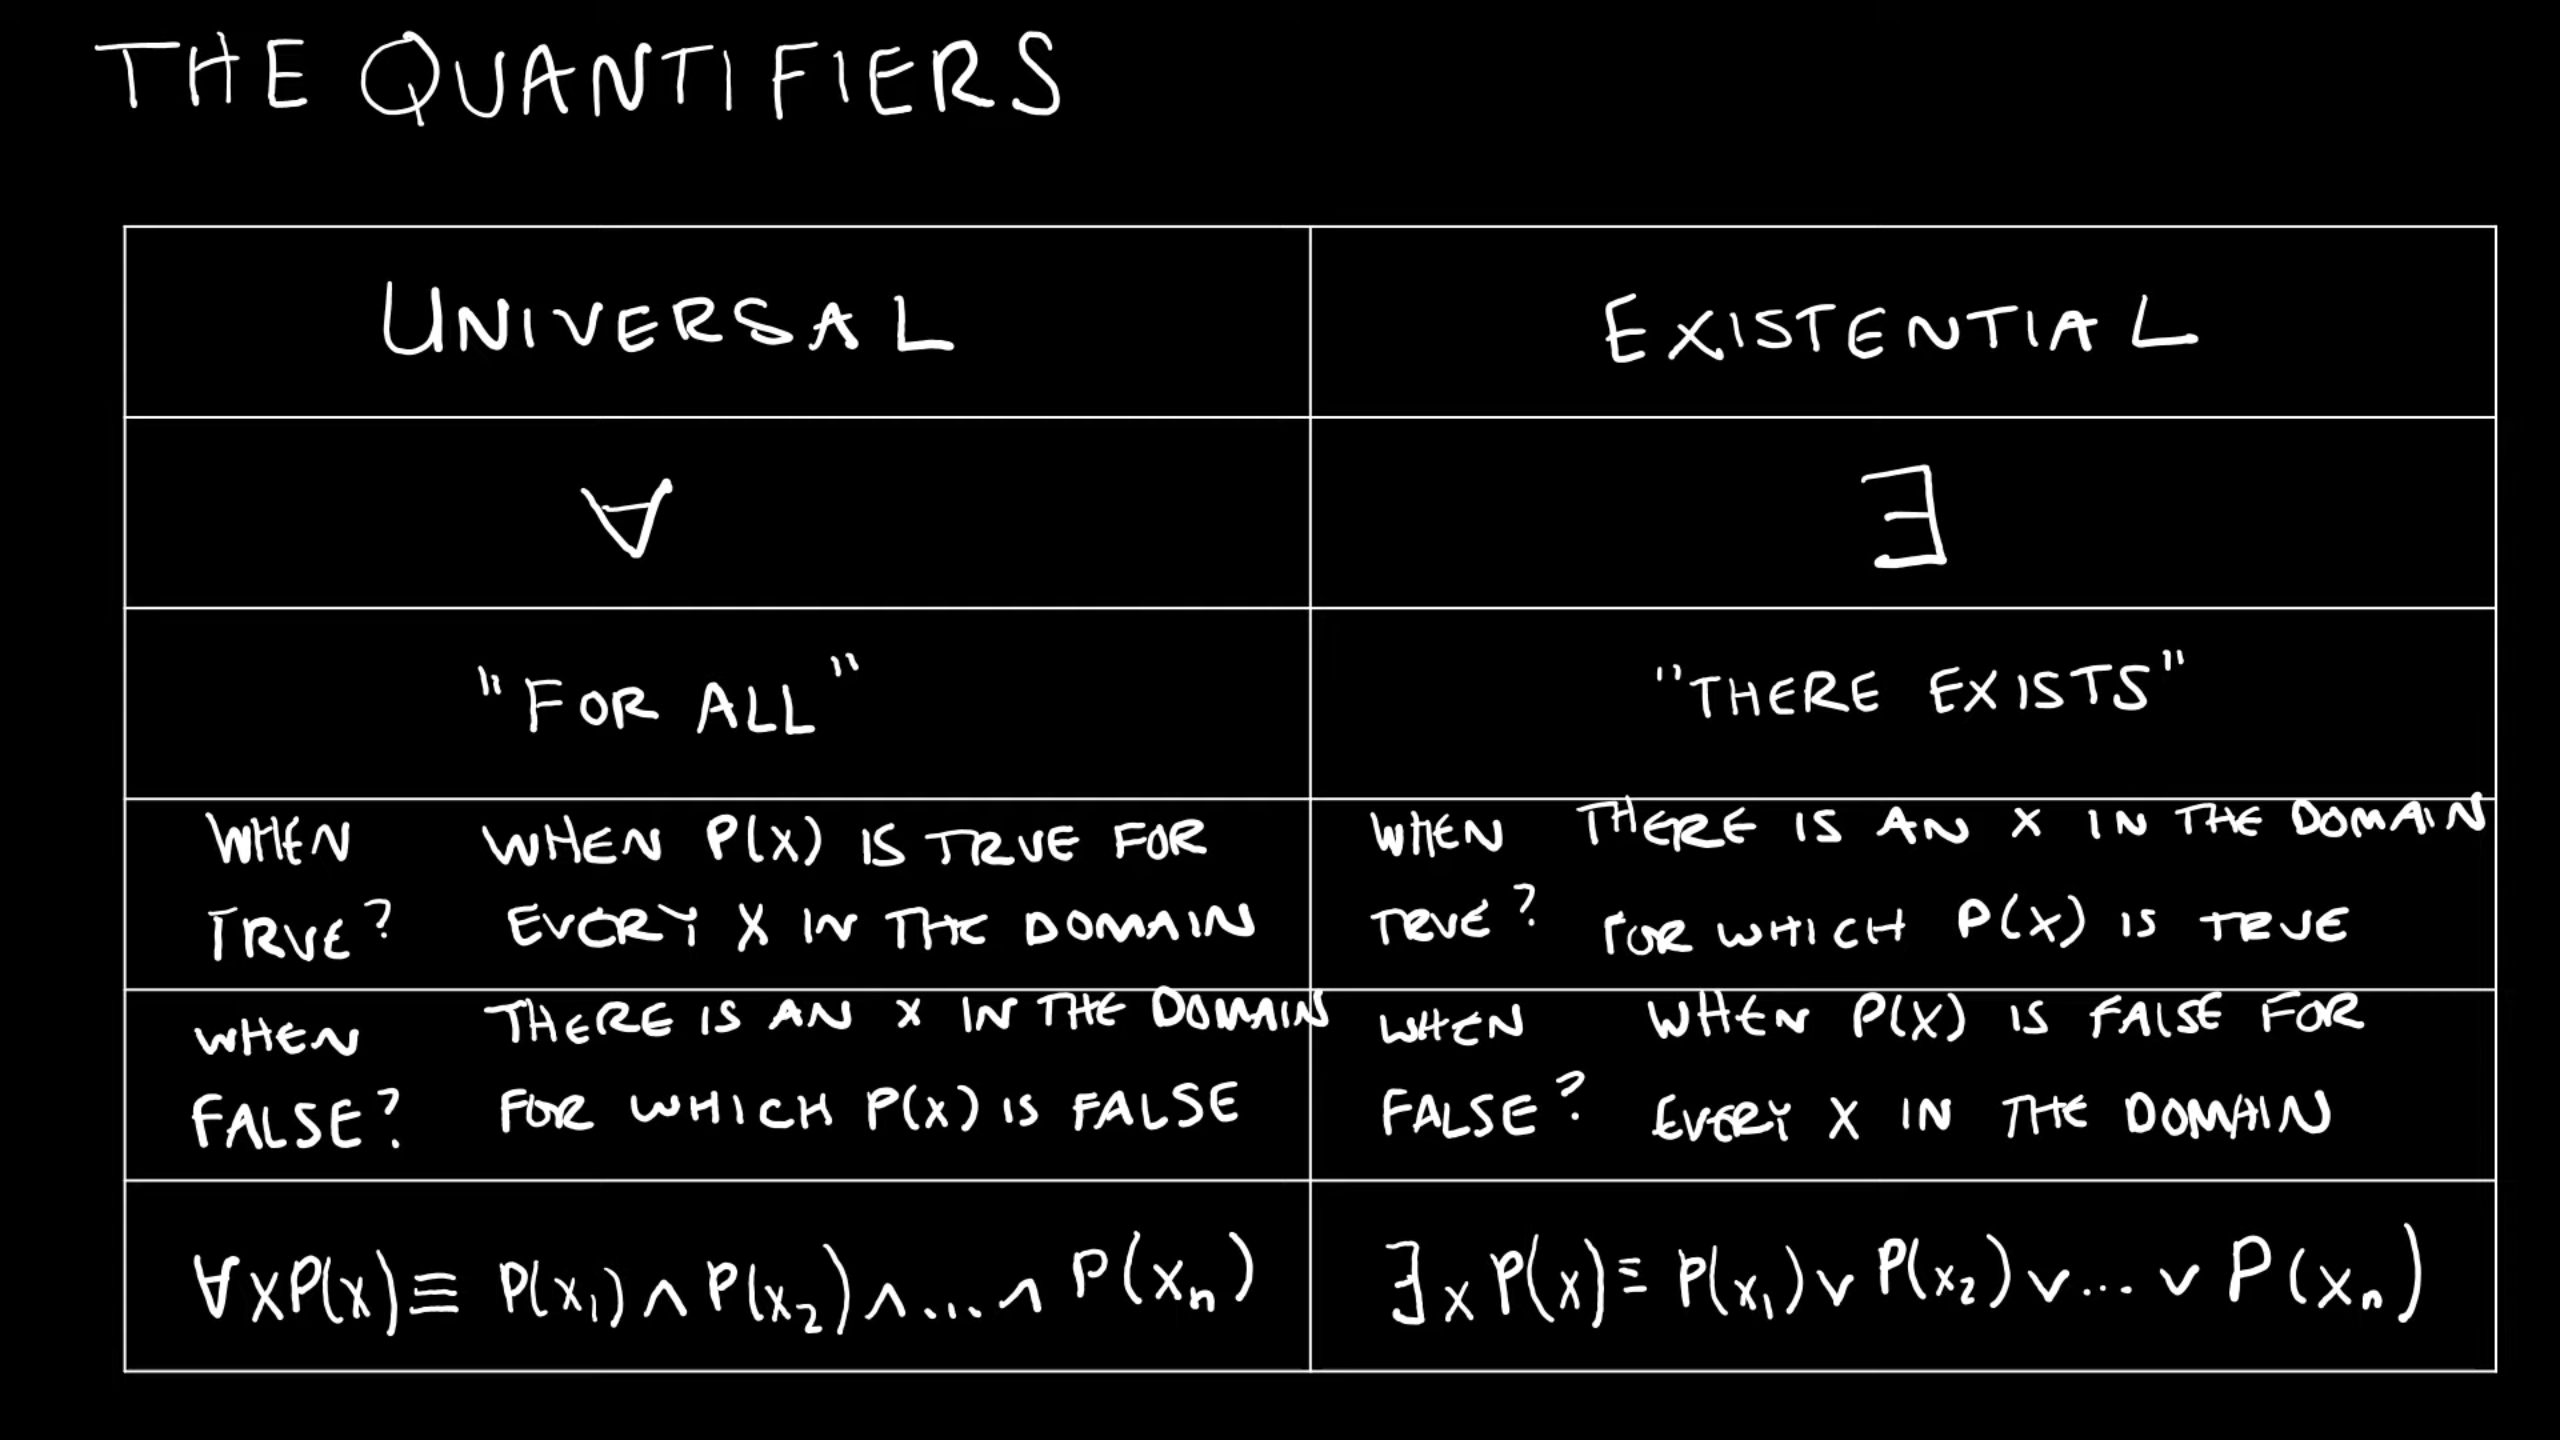 THE QUANTIFIERS
UNIVERSAL
EXISTENTIAL
∀
∃
"FOR ALL"
"THERE EXISTS"
WHEN TRUE?
WHEN P(X) IS TRUE FOR
EVERY X IN THE DOMAIN
WHEN TRUE?
THERE IS AN X IN THE DOMAIN
FOR WHICH P(X) IS TRUE
WHEN FALSE?
THERE IS AN X IN THE DOMAIN
FOR WHICH P(X) IS FALSE
WHEN FALSE?
WHEN P(X) IS FALSE FOR
EVERY X IN THE DOMAIN
∀xP(x) ≡ P(x₁) ∧ P(x₂) ∧ ... ∧ P(xₙ)
∃xP(x) ≡ P(x₁) ∨ P(x₂) ∨ ... ∨ P(xₙ)